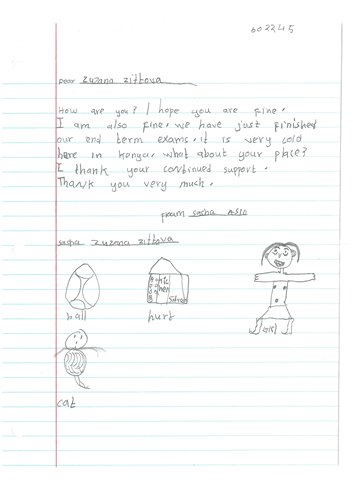 602245
Dear Zuzana Zittova
How are you? I hope you are fine.
I am also fine. we have just finished
our end term exams. it is very cold
here in kenya. what about your place?
I thank your continued support.
Thank you very much.
from sasha
sasha Zuzana Zittova
ball
hurt
girl
cat